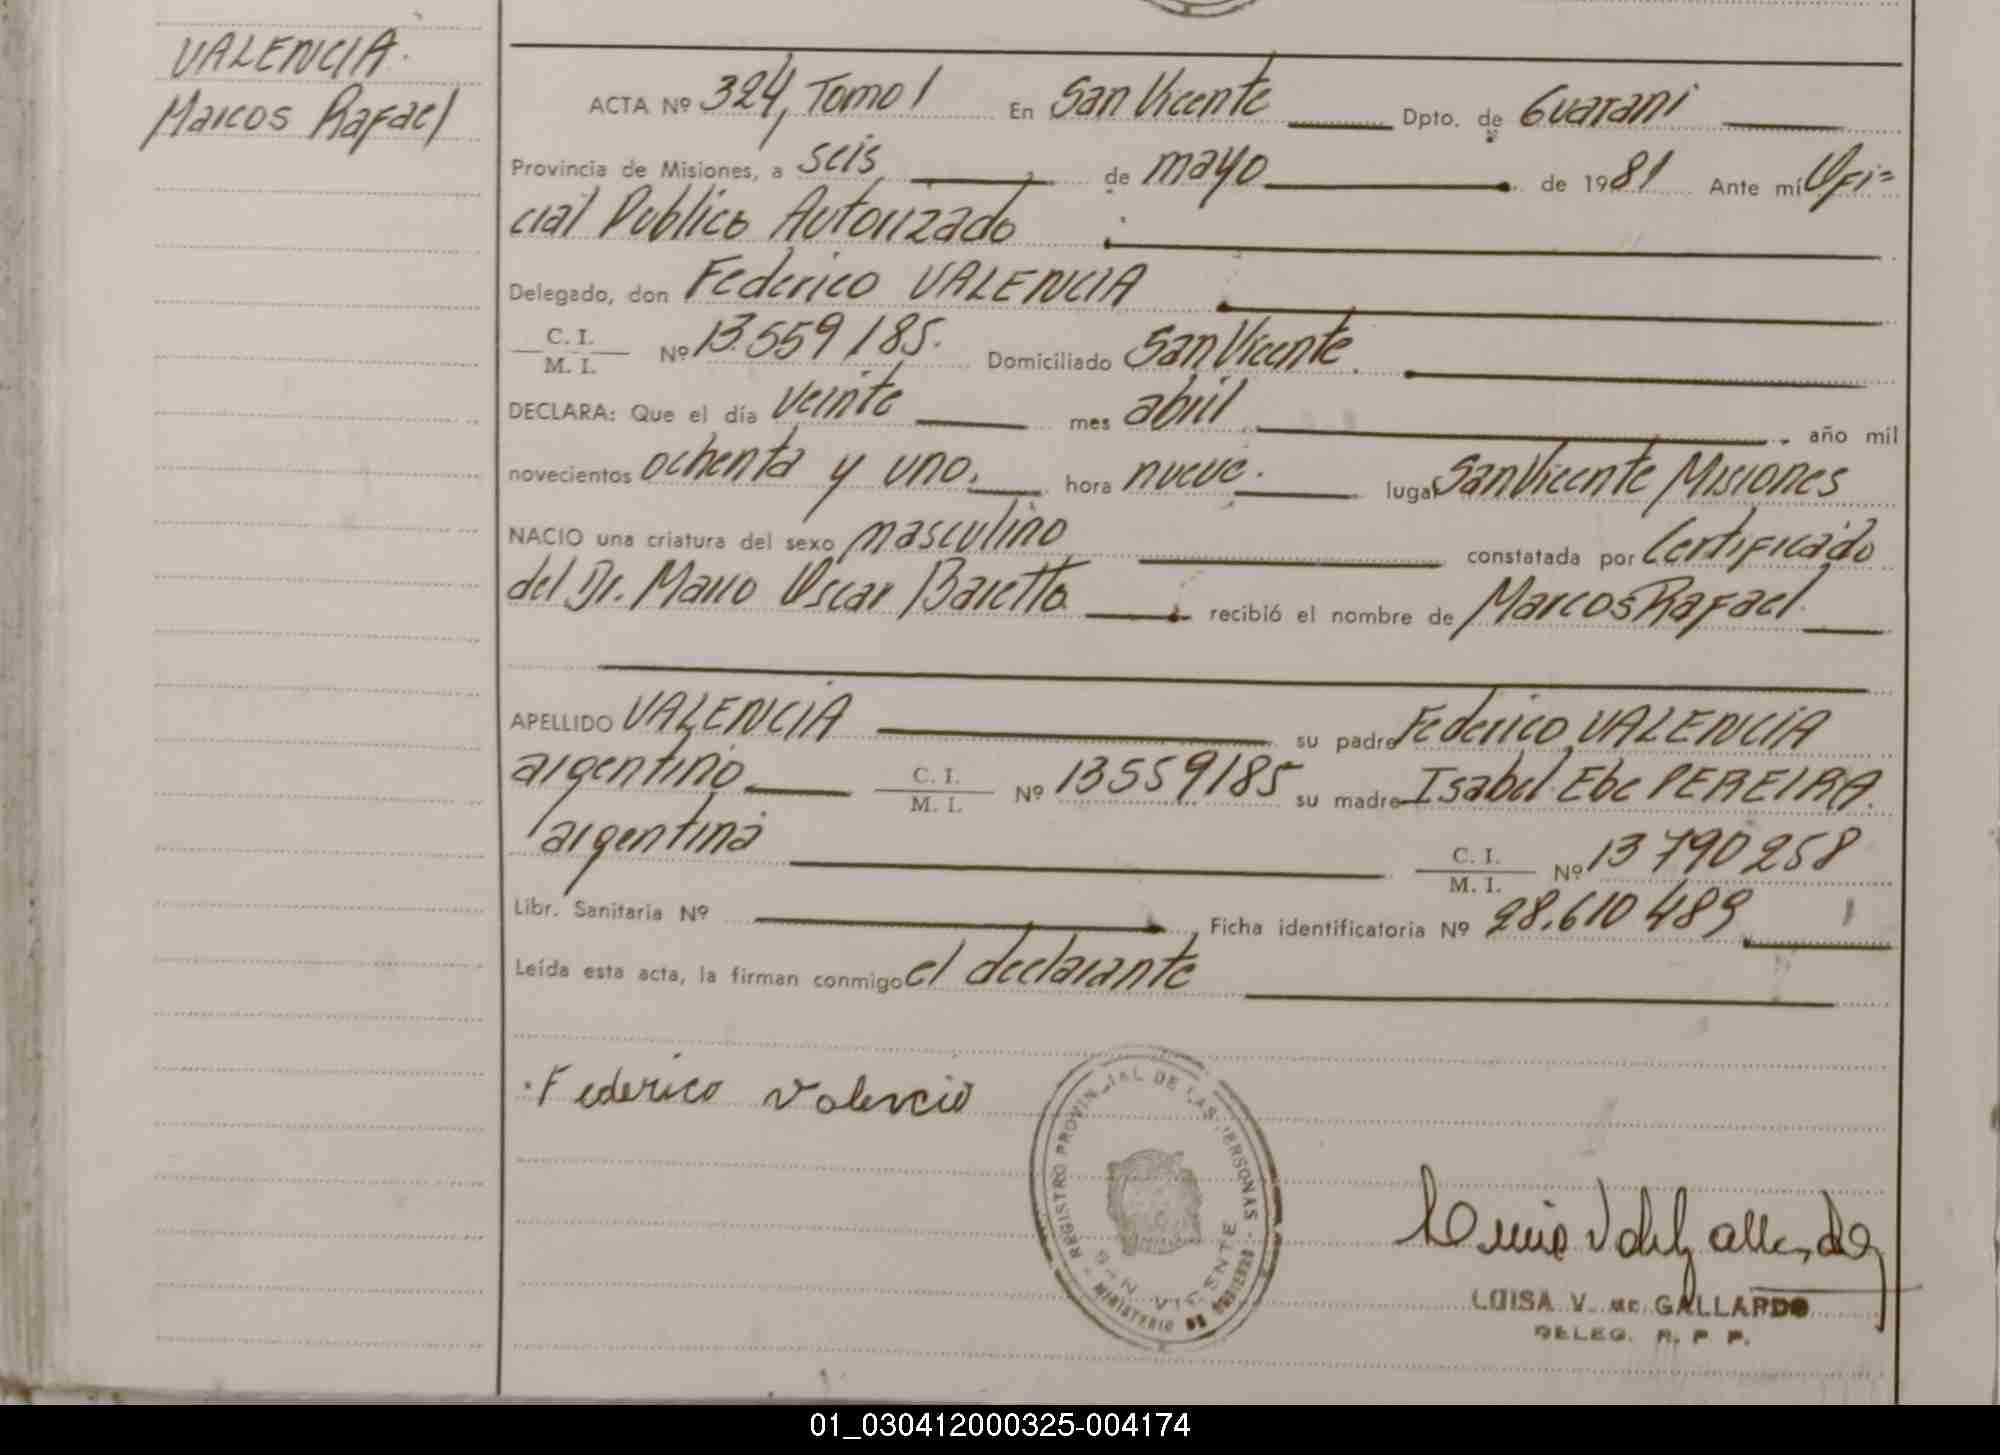 VALENCIA.
Marcos Rafael
ACTA Nº 324, Tomo 1 En San Vicente Dpto. de Guarani
Provincia de Misiones, a seis de mayo de 1981 Ante mí Ofi=
cial Publico Autorizado
Delegado, don Federico VALENCIA
C. I.
M. I.
Nº 13.559185. Domiciliado San Vicente.
DECLARA: Que el día veinte mes abril año mil
novecientos ochenta y uno. hora nueve. lugar San Vicente Misiones
NACIO una criatura del sexo masculino constatada por Certificado
del Dr. Mario Oscar Baretto recibió el nombre de Marcos Rafael.
APELLIDO VALENCIA su padre Federico VALENCIA
argentino C. I.
M. I.
Nº 13559185 su madre Isabel Ebe PEREIRA.
argentina C. I.
M. I.
Nº 13790258
Libr. Sanitaria Nº Ficha identificatoria Nº 28.610489
Leída esta acta, la firman conmigo el declarante
Federico Valencia
REGISTRO PROVINCIAL DE LAS PERSONAS
SAN VICENTE
MINISTERIO DE GOBIERNO
LUISA V. DE GALLARDO
DELEG. R. P. P.
01_030412000325-004174